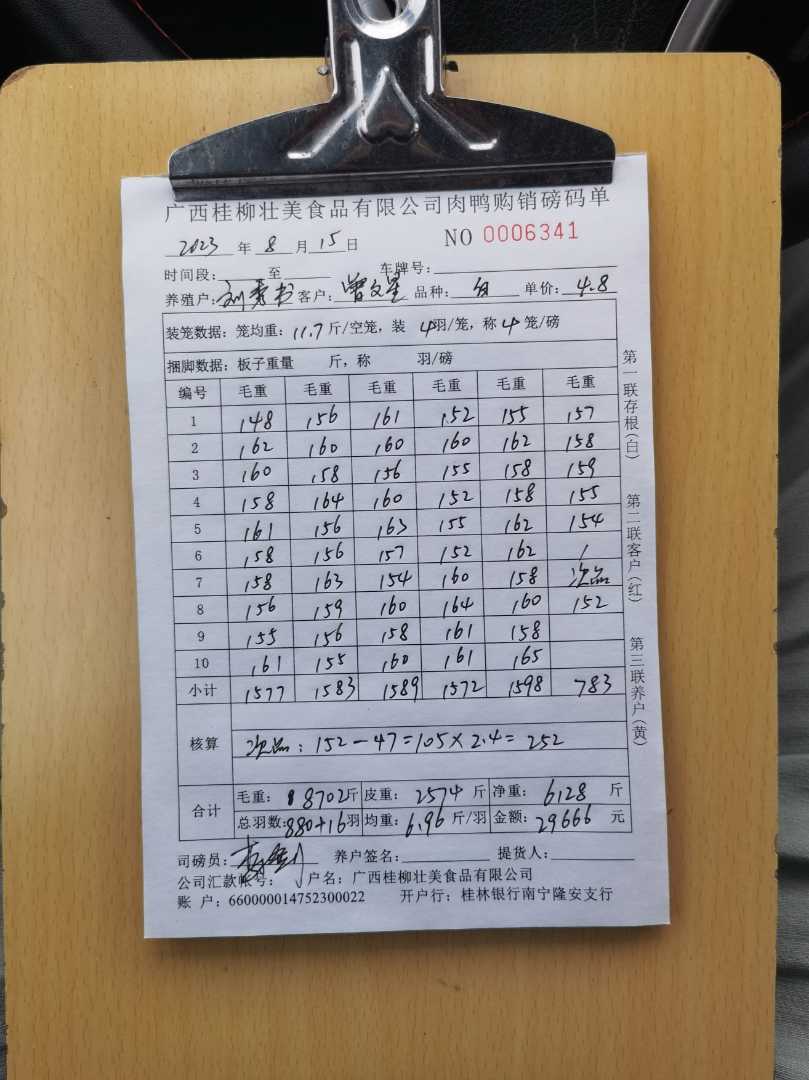 广西桂柳壮美食品有限公司肉鸭购销磅码单
2023 年 8 月 15 日 NO 0006341
时间段: 至 车牌号:
养殖户: 客户:曾文星 品种: 单价: 4.8
装笼数据: 笼均重: 11.7 斤/空笼, 装 4羽/笼, 称 4 笼/磅
捆脚数据: 板子重量 斤, 称 羽/磅
编号 毛重 毛重 毛重 毛重 毛重 毛重
1 148 156 161 152 155 157
2 162 160 160 160 162 158
3 160 158 156 155 158 159
4 158 164 160 152 158 155
5 161 156 163 155 162 154
6 158 156 157 152 162 /
7 158 163 154 160 158 次品
8 156 159 160 164 160 152
9 155 156 158 161 158
10 161 155 160 161 165
小计 1577 1583 1589 1572 1598 783
核算 次品: 152-47=105×2.4=252
合计 毛重: 8702斤 皮重: 2574 斤 净重: 6128 斤
总羽数:880+16羽 均重: 6.96 斤/羽 金额: 29666 元
司磅员: 养户签名: 提货人:
公司汇款帐号: 户名: 广西桂柳壮美食品有限公司
账 户: 660000014752300022 开户行: 桂林银行南宁隆安支行
第一联存根(白)
第二联客户(红)
第三联养户(黄)